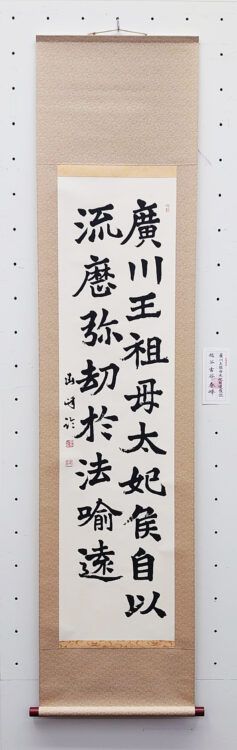 廣川王祖母太妃侯自以
流歷弥劫於法喻遠